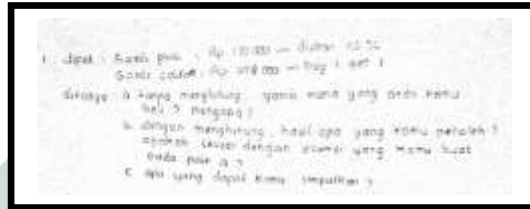 1. dipet : Gamis polos : Rp 130.000 — diskon 25 %
Gamis : Rp 000 — buy 1 get 1
ditanya : a. tanpa menghitung, gamis mana yang akan kamu
beli ? mengapa ?
b. dengan menghitung, hasil apa yang kamu peroleh ?
apakah sesuai dengan asumsi yang kamu buat
pada poin a ?
c. apa yang dapat kamu simpulkan ?